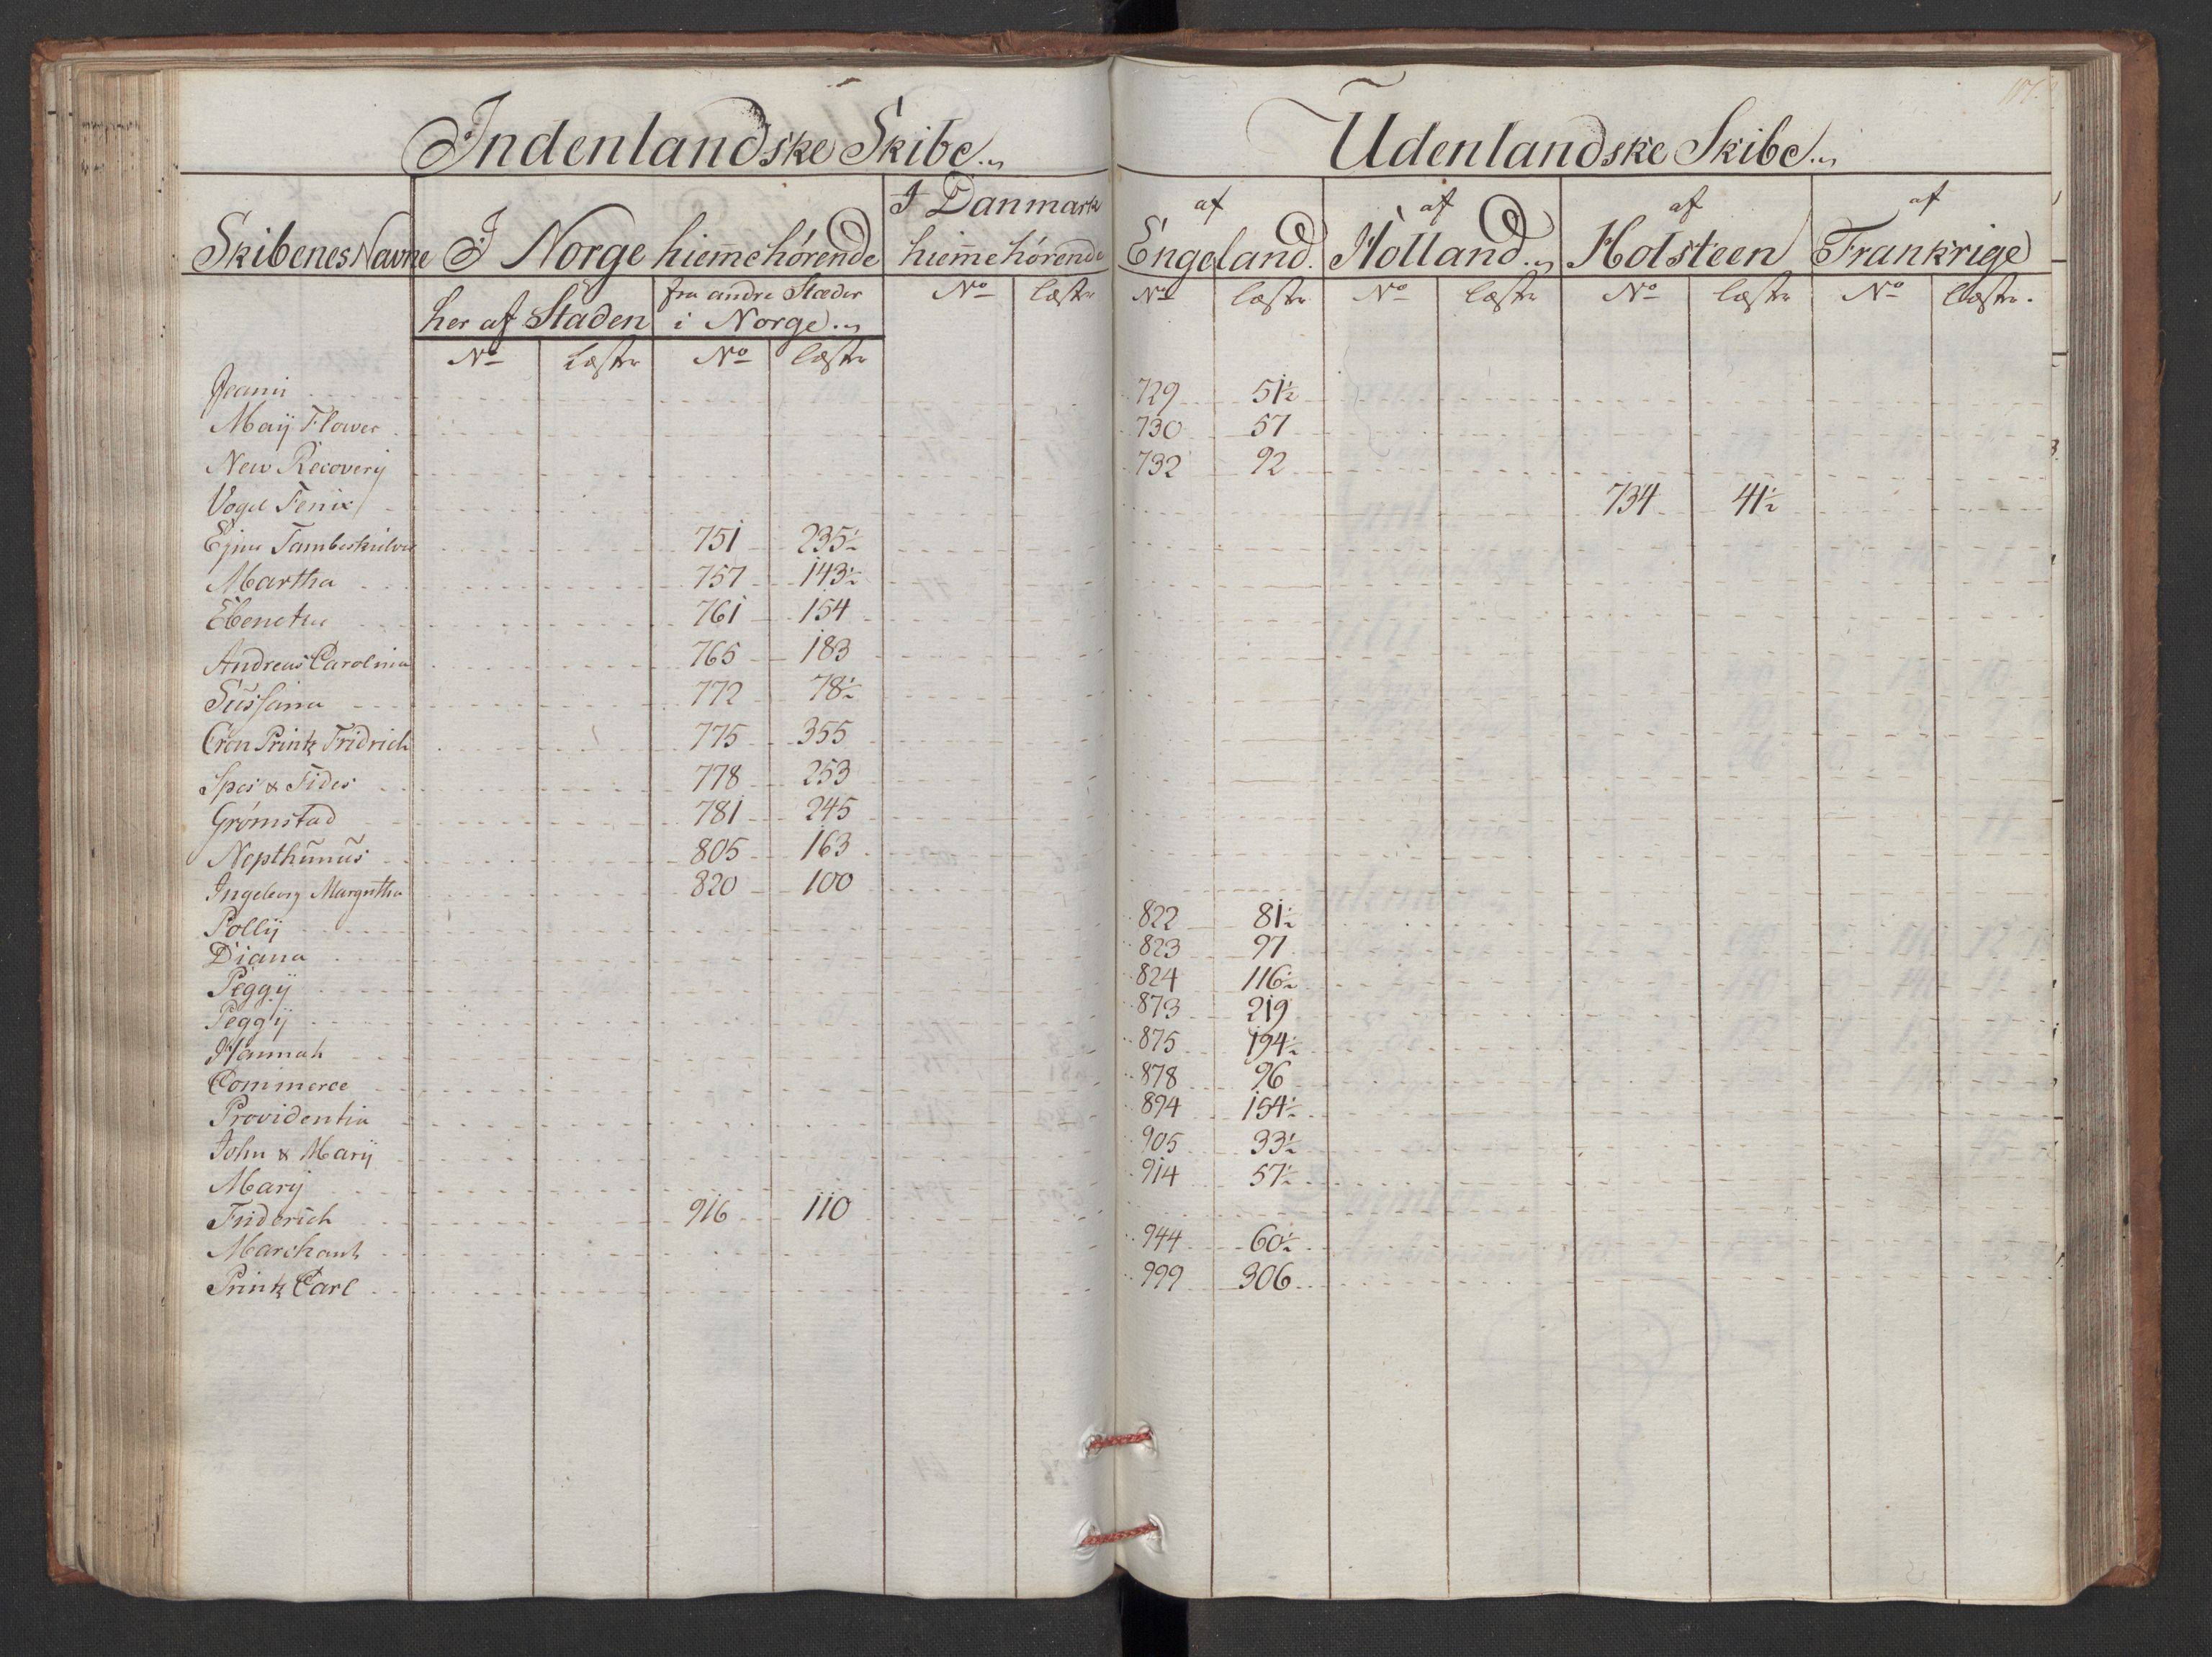 Indenlandske Skibe
Udenlandske Skibe
Skibenes Navne
I Norge hiem̄ehörende
I Danmark
hiem̄ehörende
af
Engeland.
af
Holland
af
Holsteen
af
Frankrige
her af Staden
fra andre Stæder
i Norge
No Læster No Læster
No Læster
No Læster No Læster No Læster No Læster
Jeanni 729 51½
Maÿ Flower 730 57
New Recoverÿ 732 92
Vogel Fenix 734 41½
Ejnar Tambeskielver 751 235½
Martha 757 143½
Ebenetzer 761 154
Andreas Carolina 765 183
Sussana 772 78½
Cron Printz Fridrich 775 355
Spes & Fides 778 253
Grömstad 781 245
Nepthunus 805 163
Ingeborg Margretha 820 100
Pollÿ 822 81½
Diana 823 97
Peggÿ 824 116½
Peggÿ 873 219
Hannah 875 194½
Commerce 878 96
Providentia 894 154½
John & Marÿ 905 33½
Marÿ 914 57½
Friderich 916 110
Marchant 944 60½
Printz Carl 999 306